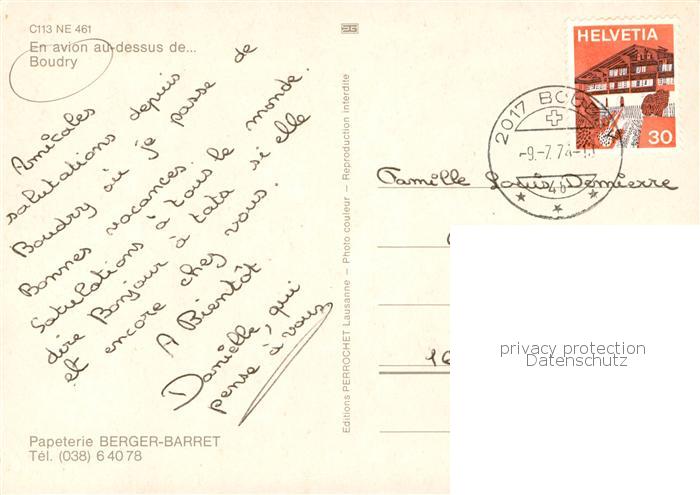 C113 NE 461
En avion au-dessus de...
Boudry
Amicales
salutations depuis
Boudry où je passe de
Bonnes vacances.
Salutations à tous le monde.
dire Bonjour à tata si elle
et encore chez vous.
A Bientôt
Danielle, qui
pense à vous
Papeterie BERGER-BARRET
Tél. (038) 6 40 78
Editions PERROCHET Lausanne – Photo couleur – Reproduction interdite
HELVETIA
30
2017
-9.-7.74
Famille Louis Demierre
16
privacy protection
Datenschutz